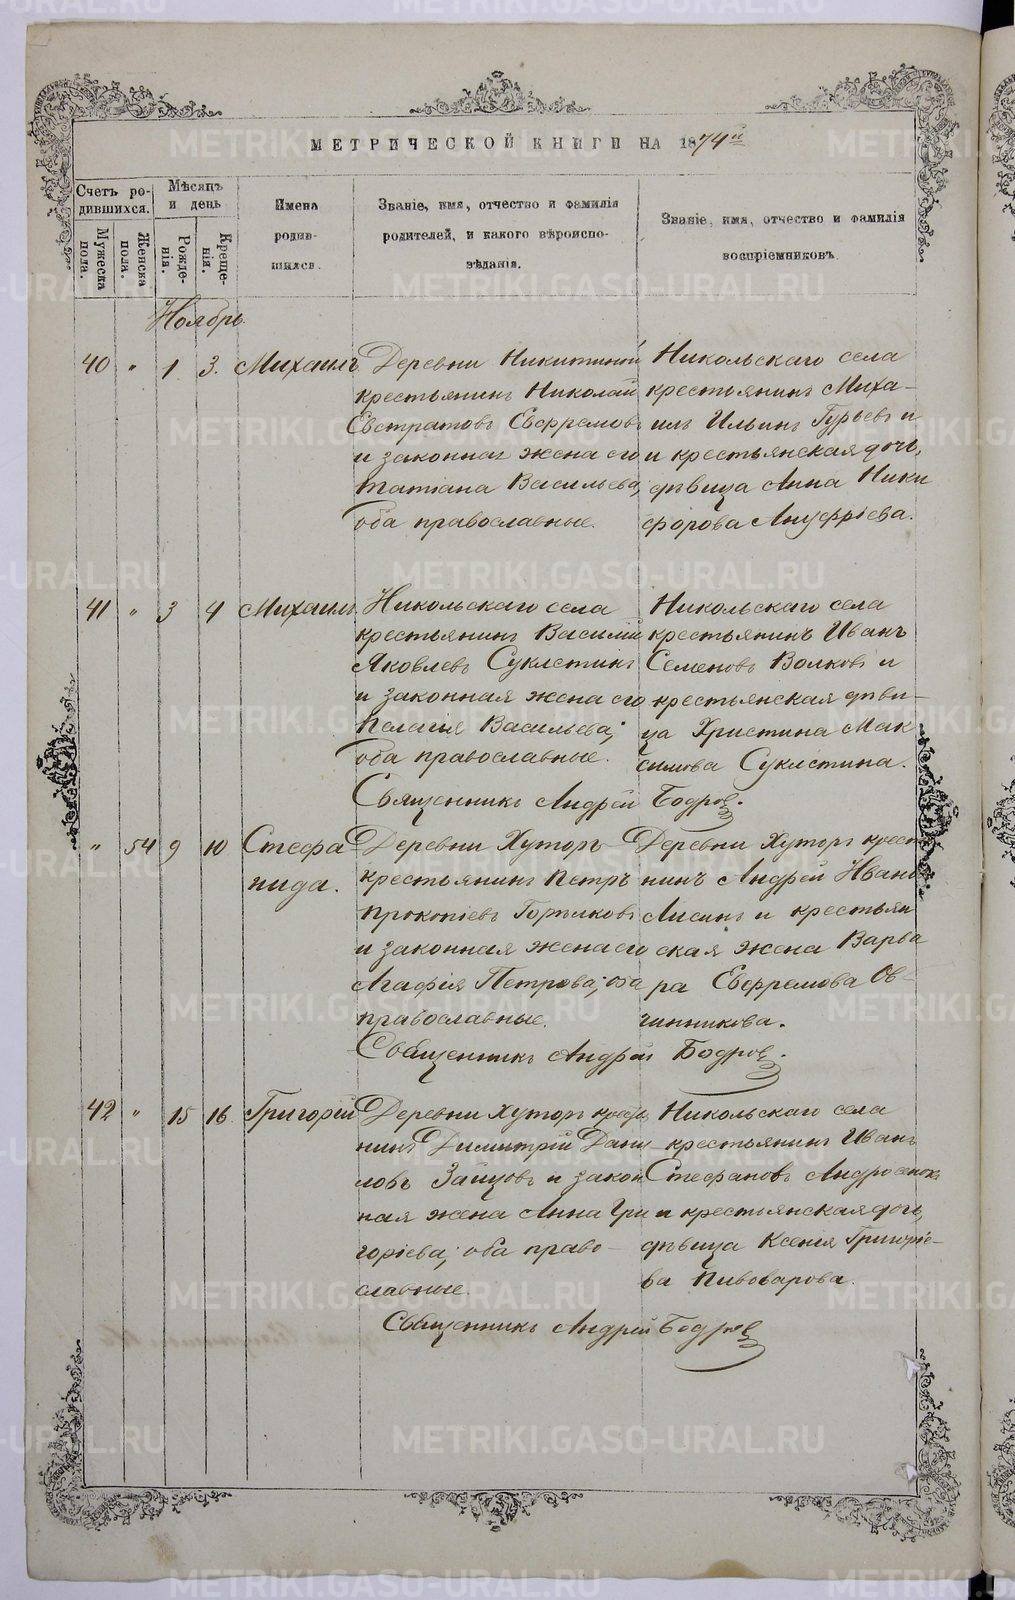 МЕТРИЧЕСКОЙ КНИГИ НА 1874й
Счетъ ро-
дившихся.
Мужеска
пола.
Женска
пола.
Мѣсяцъ
и день
Рожде-
нія.
Креще-
нія.
Имена
родив-
шихся.
Званіе, имя, отчество и фамилія
родителей, и какого вѣроиспо-
вѣданія.
Званіе, имя, отчество и фамилія
воспріемниковъ.
Ноябрь.
40 " 1 3. Михаилъ
Деревни Никитиной
крестьянинъ Николай
Евстратовъ Евфремовъ
и законная жена его
Татіана Васильева,
оба православные.
Никольскаго села
крестьянинъ Миха-
илъ Ильинъ Гурьевъ и
и крестьянская дочь,
дѣвица Анна Ники
форова Ануфріева.
41 " 3 4 Михаилъ
Никольскаго села
крестьянинъ Василій
Яковлевъ Суклетинъ
и законная жена его
Пелагія Васильева;
оба православные.
Никольскаго села
крестьянинъ Иванъ
Семеновъ Волковъ и
крестьянская дѣви-
ца Христина Мак
симова Суклетина.
Священникъ Андрей Бодров.
" 54 9 10 Стефа
нида.
Деревни Хуторъ
крестьянинъ Петръ
Прокопіевъ Горшковъ
и законная жена его
Агафія Петрова; оба
православные.
Деревни Хуторъ крест
нинъ Андрей Ивано
Лисинъ и крестьян
ская жена Варва
ра Евфремова Ов-
чинникова.
Священникъ Андрей Бодров.
42 " 15 16 Григорій
Деревни Хуторъ крестья
нинъ Димитрій Дани
ловъ Зайцовъ и закон
ная жена Анна Гри
горіева; оба право-
славные.
Никольскаго села
крестьянинъ Иванъ
Стефановъ
и крестьянская дочь,
дѣвица Ксенія Григоріе-
ва Пивоварова.
Священникъ Андрей Бодров
METRIKI.GASO-URAL.RU